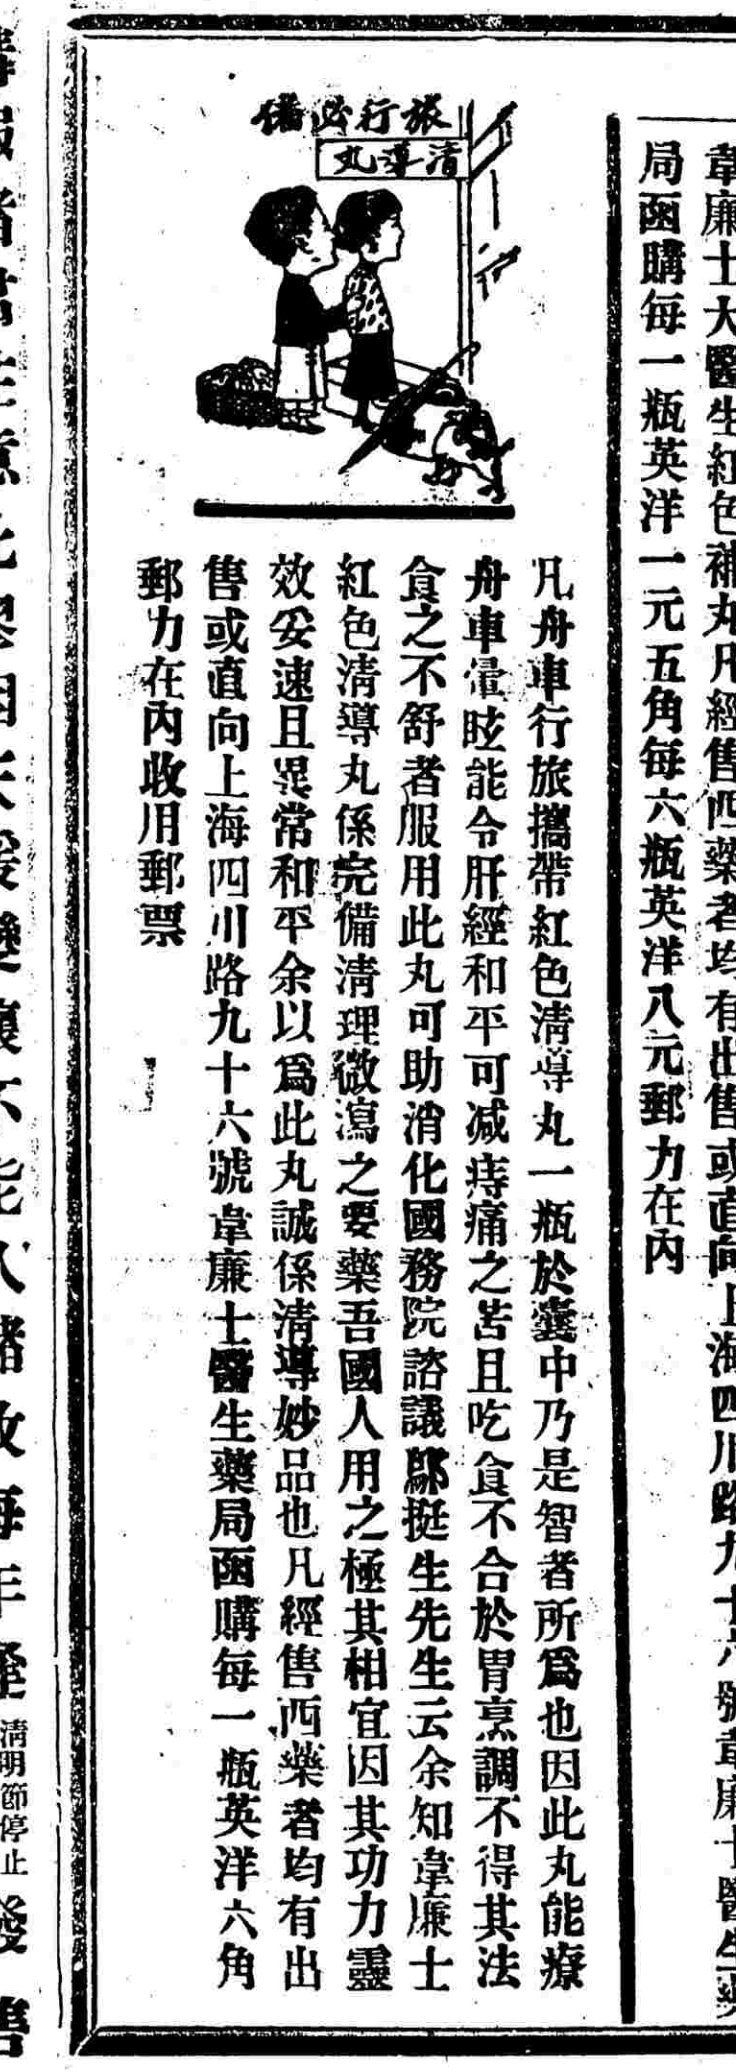 韋廉士大醫生紅色補丸凡經售西藥者均有出售或直向上海四川路九十六號韋廉士醫生藥
局函購每一瓶英洋一元五角每六瓶英洋八元郵力在內
旅行必備
清導丸
凡舟車行旅攜帶紅色清導丸一瓶於囊中乃是智者所爲也因此丸能療
舟車暈眩能令肝經和平可減痔痛之苦且吃食不合於胃烹調不得其法
食之不舒者服用此丸可助消化國務院諮議鄔挺生先生云余知韋廉士
紅色清導丸係完備清理微瀉之要藥吾國人用之極其相宜因其功力靈
效妥速且異常和平余以爲此丸誠係清導妙品也凡經售西藥者均有出
售或直向上海四川路九十六號韋廉士醫生藥局函購每一瓶英洋六角
郵力在內收用郵票
清明節停止
發售